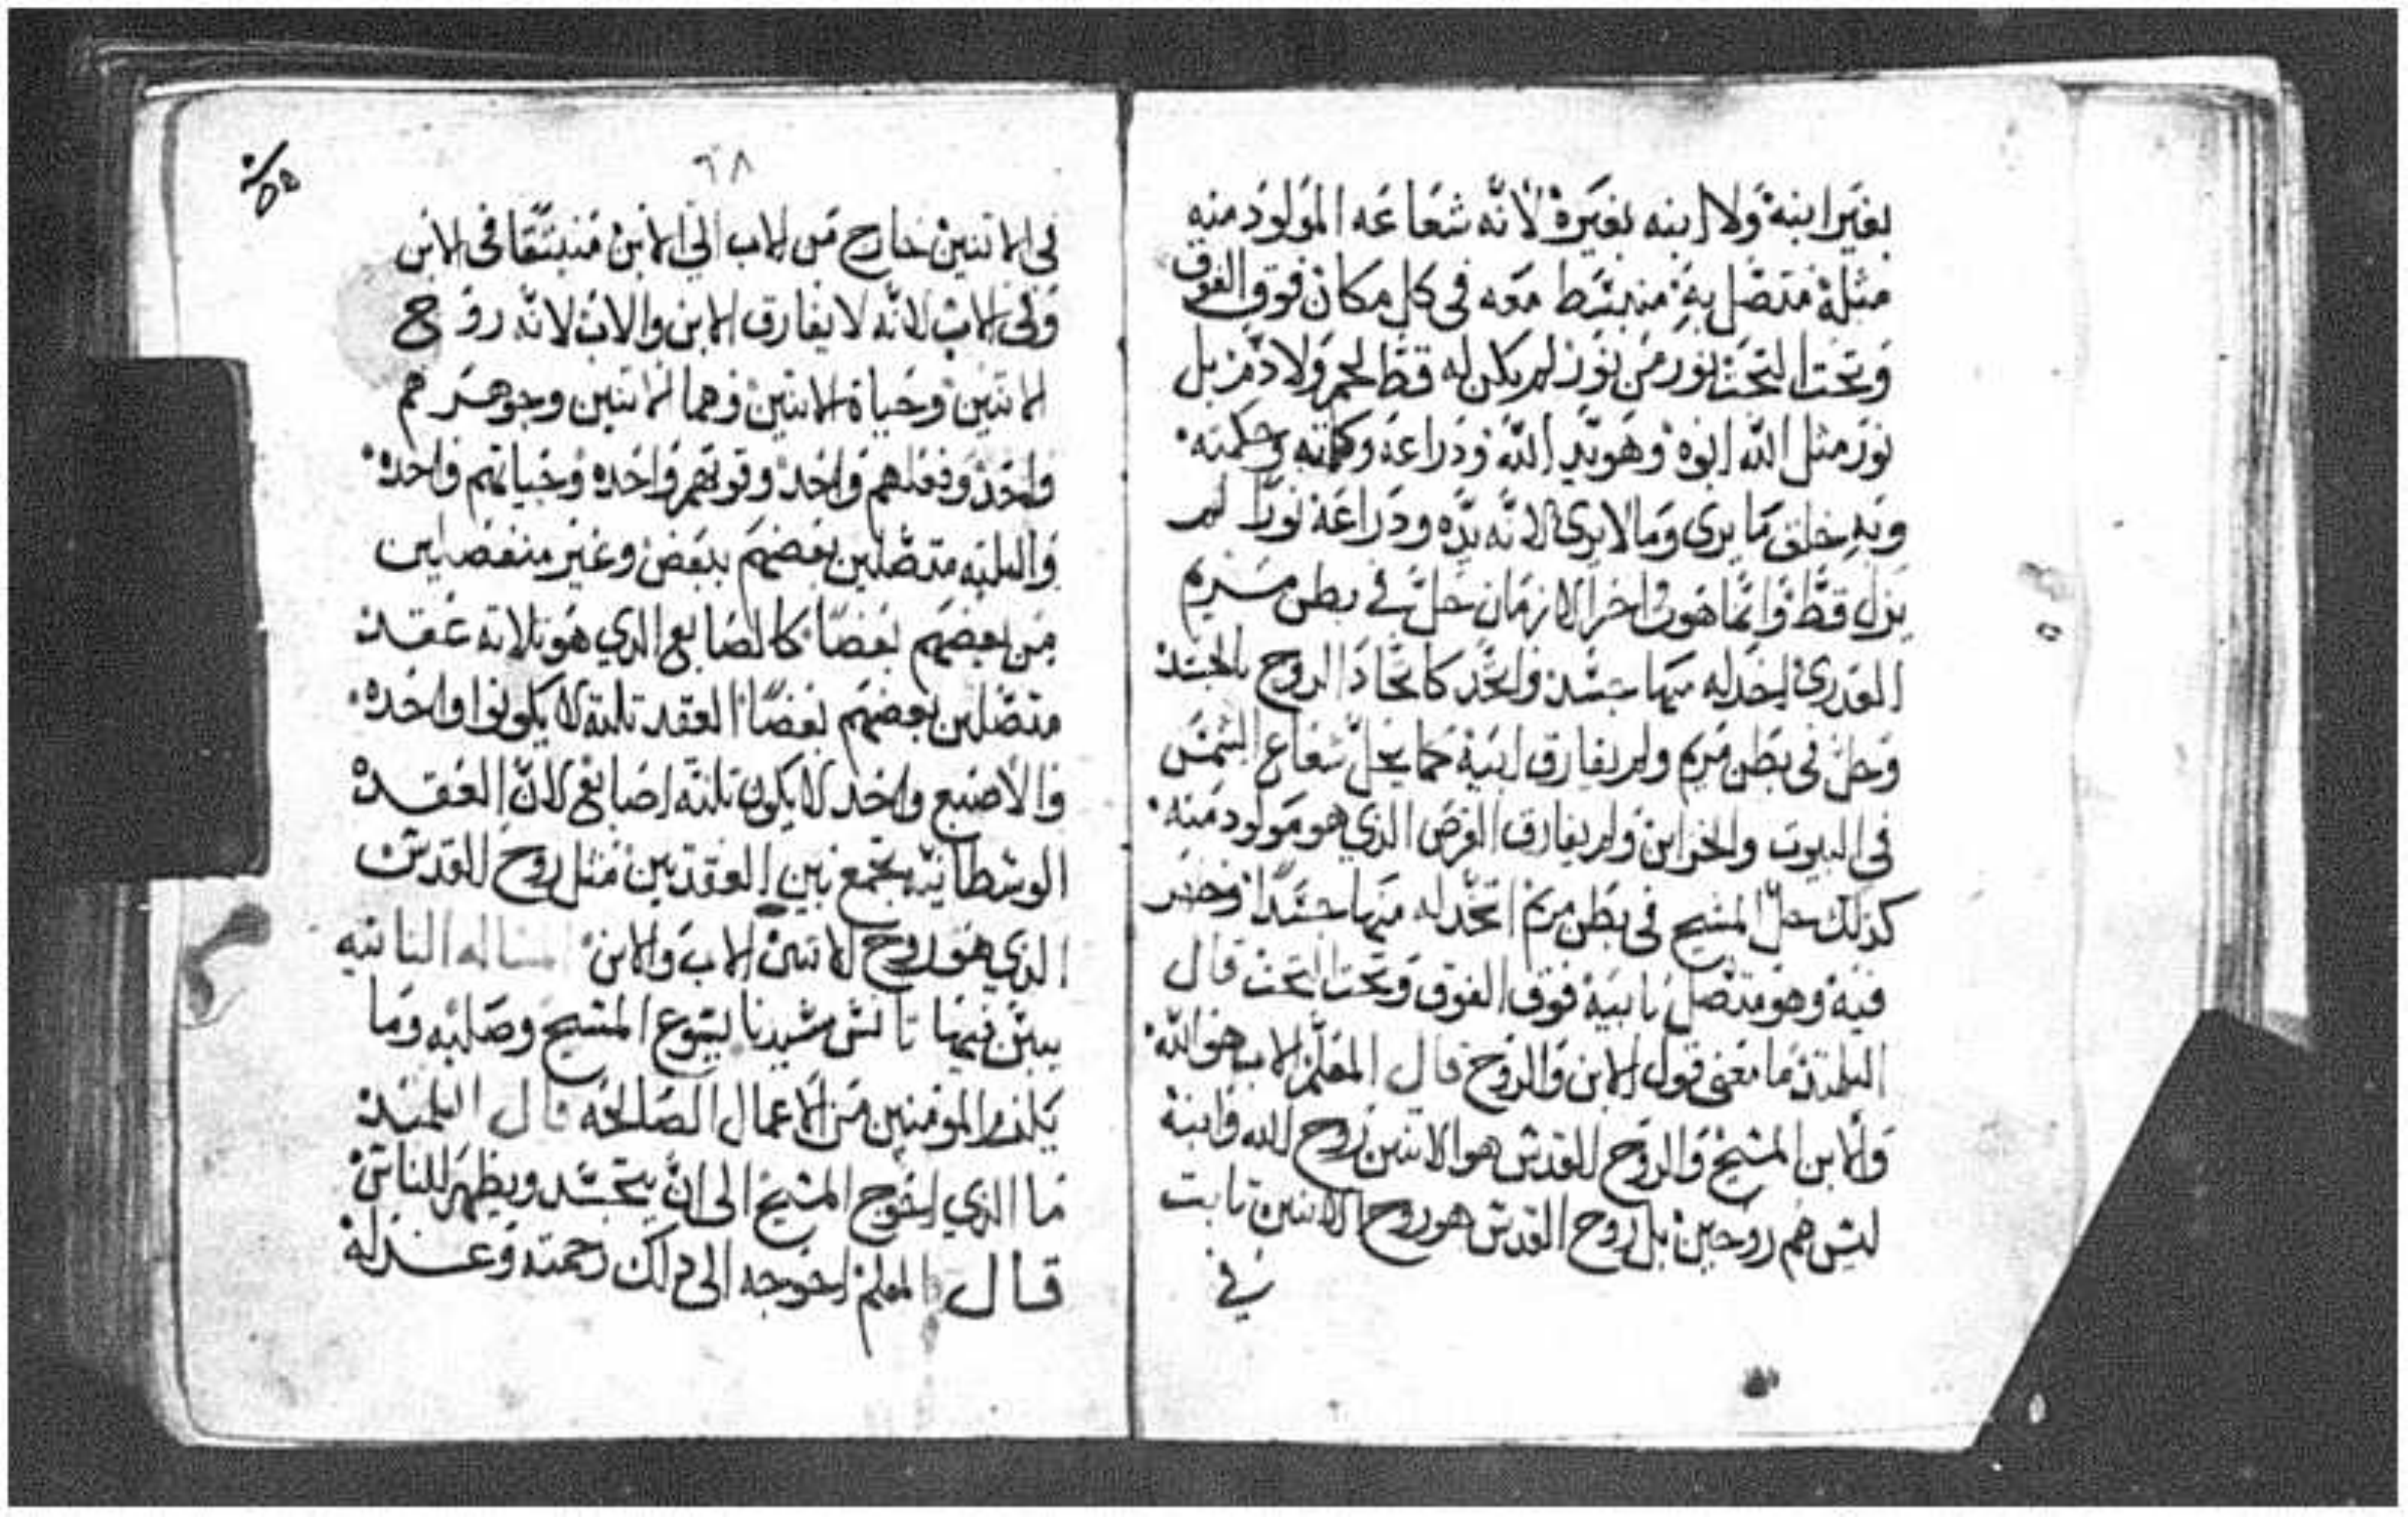 بغير ابنه ولا ابنه بغيره لانه شعاعه المولود منه
مثله متصل به منبسط معه في كل مكان فوق الفوق
وتحت التحت نور من نور لم يكن له قط لحم ولا دم بل
نور مثل الله ابوه وهو يد الله وذراعه وكلمته وحكمته
وبه خلق ما يرى وما لا يرى لانه يده وذراعه نورا لم
يزل قط وانما هو في اخر الازمان حل في بطن مريم
العدرى ليتخد له منها جسد واتحد كاتحاد الروح بالجسد
وحل في بطن مريم ولم يفارق ابيه كما يحل شعاع الشمس
في البيوت والخزاين ولم يفارق القرص الذي هو مولود منه
كذلك حل المسيح في بطن مريم اتخد له منها جسدا وحضر
فيه وهو متصل بابيه فوق الفوق وتحت التحت قال
التلميذ ما معنى قول الابن والروح قال المعلم الاب هو الله
والابن المسيح والروح القدس هو الاتنين روح الله وابنه
ليس هم روحين بل روح القدس هو روح الاتنين تابت
في
٦٨
في الاتنين خارج من الاب الى الابن منبتقا في الابن
وفي الاب لانه لا يفارق الابن والاب لانه روح
الاتنين وحياة الاتنين وهما الاتنين وجوهرهم
واحد وفعلهم واحد وقوتهم واحده وحياتهم واحده
والتلته متصلين بعضهم ببعض وغير منفصلين
من بعضهم بعضا كالصابع الدي هو تلاته عقد
متصلين بعضهم بعضا العقد تلته لا يكونوا واحده
والاصبع واحد لا يكون تلته اصابع لان العقده
الوسطانيه تجمع بين العقدتين مثل روح القدس
الدي هو روح الاتنين الاب والابن مساله التانيه
يبين فيها تانس سيدنا يسوع المسيح وصلبه وما
يلزم المومنين من الاعمال الصالحه قال التلميد
ما الدي احوج المسيح الى ان يتجسد ويظهر للناس
قال المعلم احوجه الى دلك رحمته وعدله